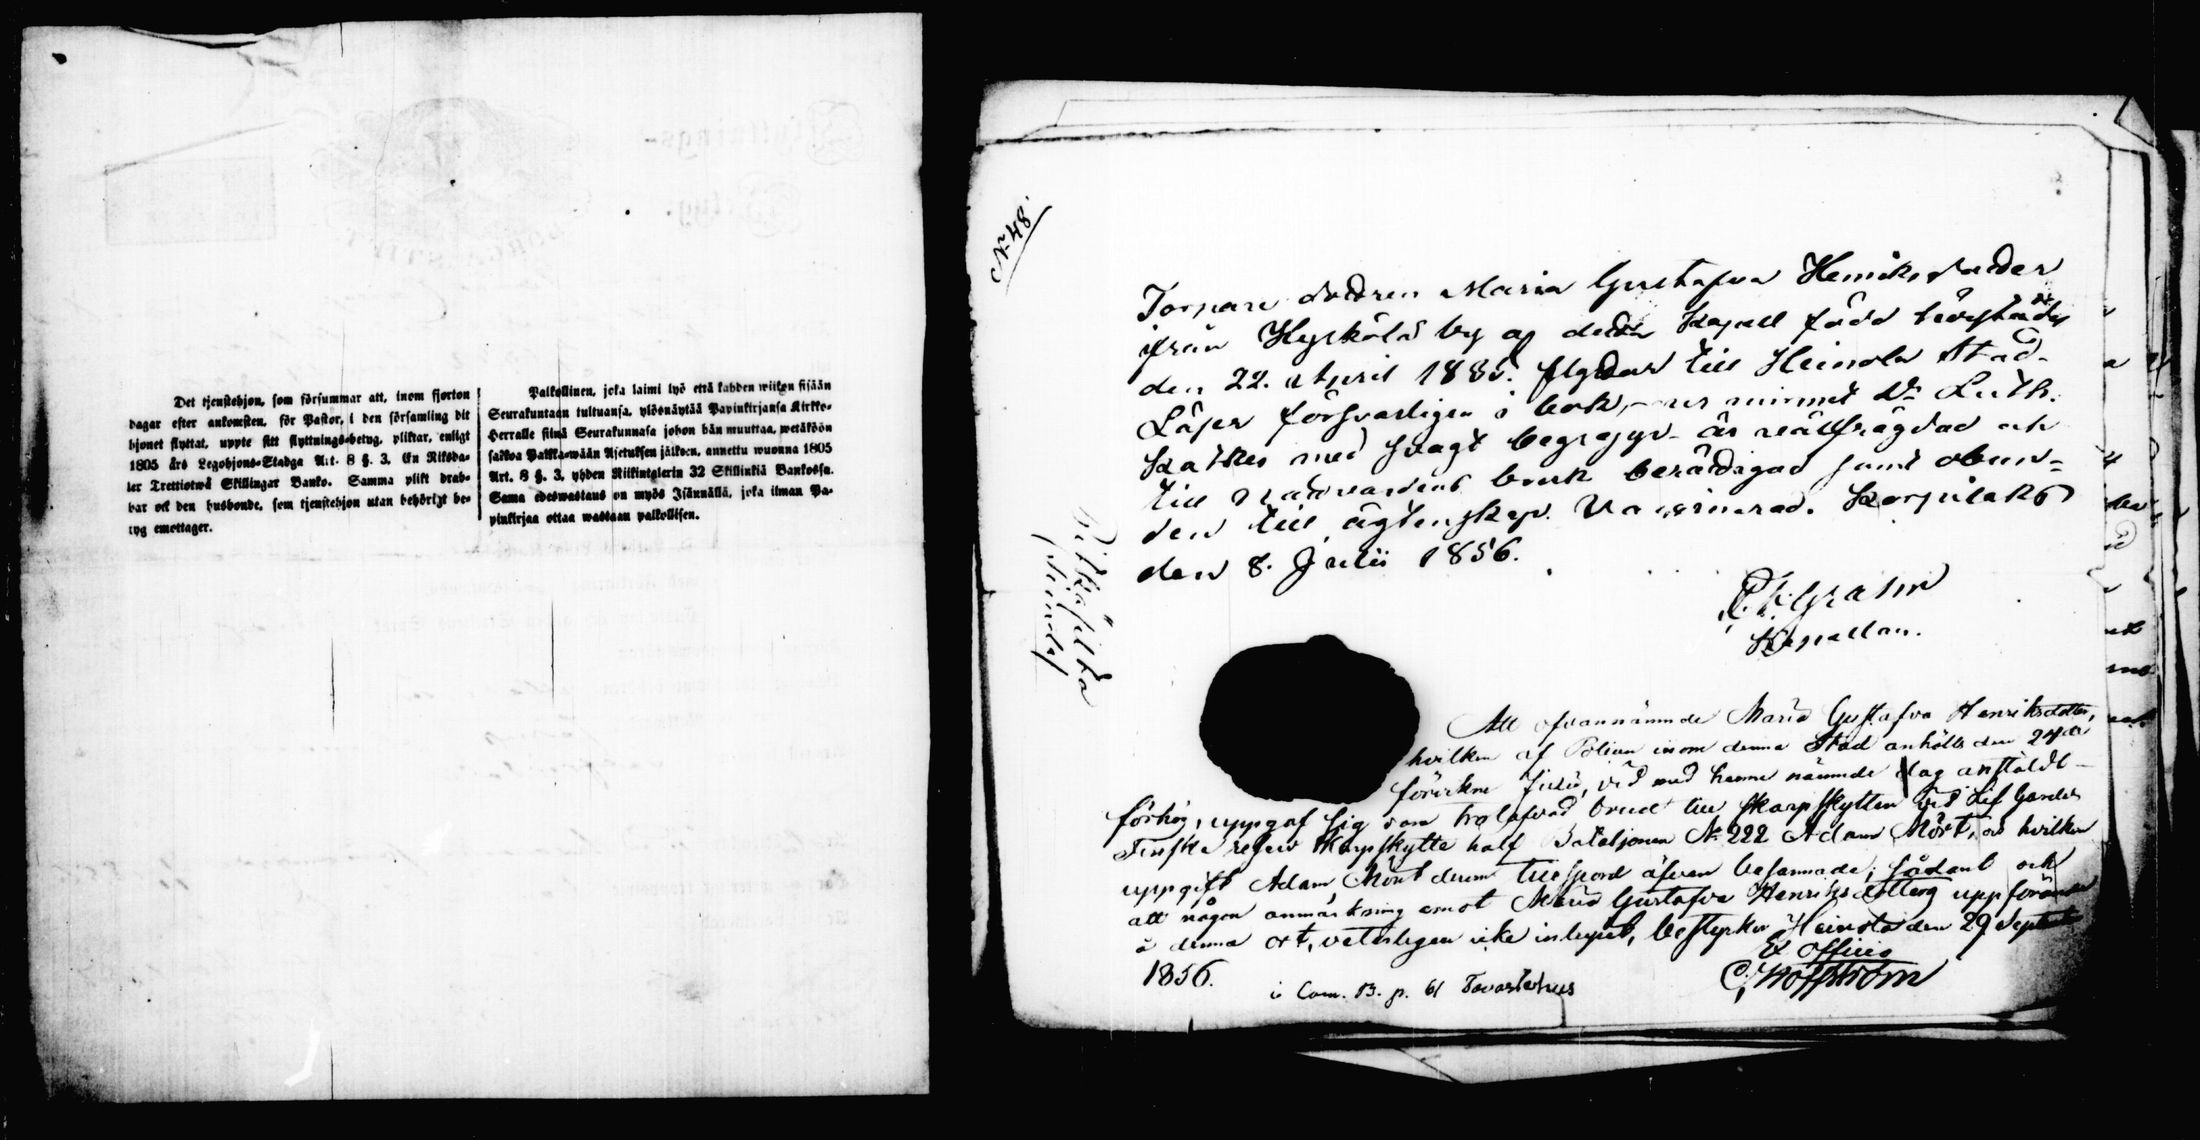 Det tjenstehjon, som försummar att, inom fjorton
dagar efter ankomsten, för Pastor, i den församling dit
hjonet flyttat, uppte sitt flyttnings-betyg, pliktar, enligt
1805 års Legohjons-Stadga Art. 8 §. 3. En Riksda-
ler Trettiotwå Skillingar Banko. Samma plikt drab-
bar ock den husbonde, som tjenstehjon utan behörigt be-
tyg emottager.
Palkollinen, joka laimi lyö että kahden wiikon sisään
Seurakuntaan tultuansa, ylösnäytää Papinkirjansa Kirkko-
Herralle siinä Seurakunnasa johon hän muuttaa, wetäköön
sakkoa Palkka-wään Asetuksen jälkeen, annettu wuonna 1805
Art. 8 §. 3, yhden Riikintalerin 32 Skillinkiä Bankossa.
Sama edeswastaus on myös Isännällä, joka ilman Pa-
pinkirjaa ottaa wastaan palkollisen.
N:o 48.
Torpare dottren Maria Gustafva Henriksdotter
ifrån Heyskölä by og detta Kapell född
den 22. April 1835. flyttar till Heinola Stad.
Läser försvarligen i bok, minnet Dr Luth.
Katkes med svagt begrepp - är välfrägdad och
till Nattvardens bruk berättigad samt obun-
den till ägtenskap. Vaccinerad. Korpilaks
den 8. Julii 1856.
Grahn
Kapellan.
Att ofvannämnde Maria Gustafva Henriksdotter,
hvilken af Polisen inom denna Stad anhölts den 24de
förirkne Julii, vid med henne nämnde dag anstäldt
förhör, uppgaf sig vara trolofvad brud till Skarpskytten vid Lif Gardets
Finska reserv Skarpskytte half Bataljonen No 222 Adam Mört, och hvilken
uppgift Adam Mört derom tillspord äfven besannade; sådant och
att någon anmärkning emot Maria Gustafva Henriksdotters uppförande
å denna ort, veterligen icke inlupit, bestyrker Heinola den 29 Septemb
1856.
Ex officio
C. Hoffström
i Com. B. p. 61 Tavastehus